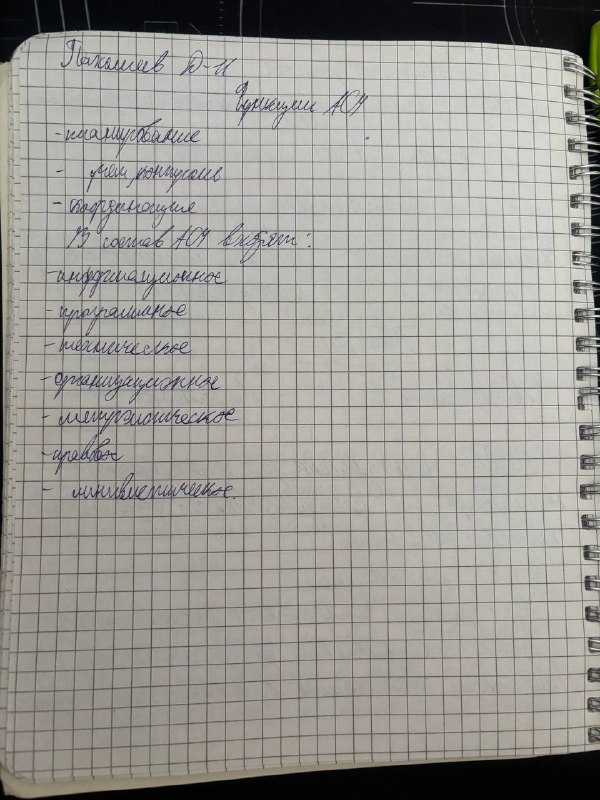 Пахомиев Д-11
Функции АСУ
- планирование
- учет, контроль
- координация
В состав АСУ входят:
- информационное
- программное
- техническое
- организационное
- метрологическое
- правовое
- лингвистическое.